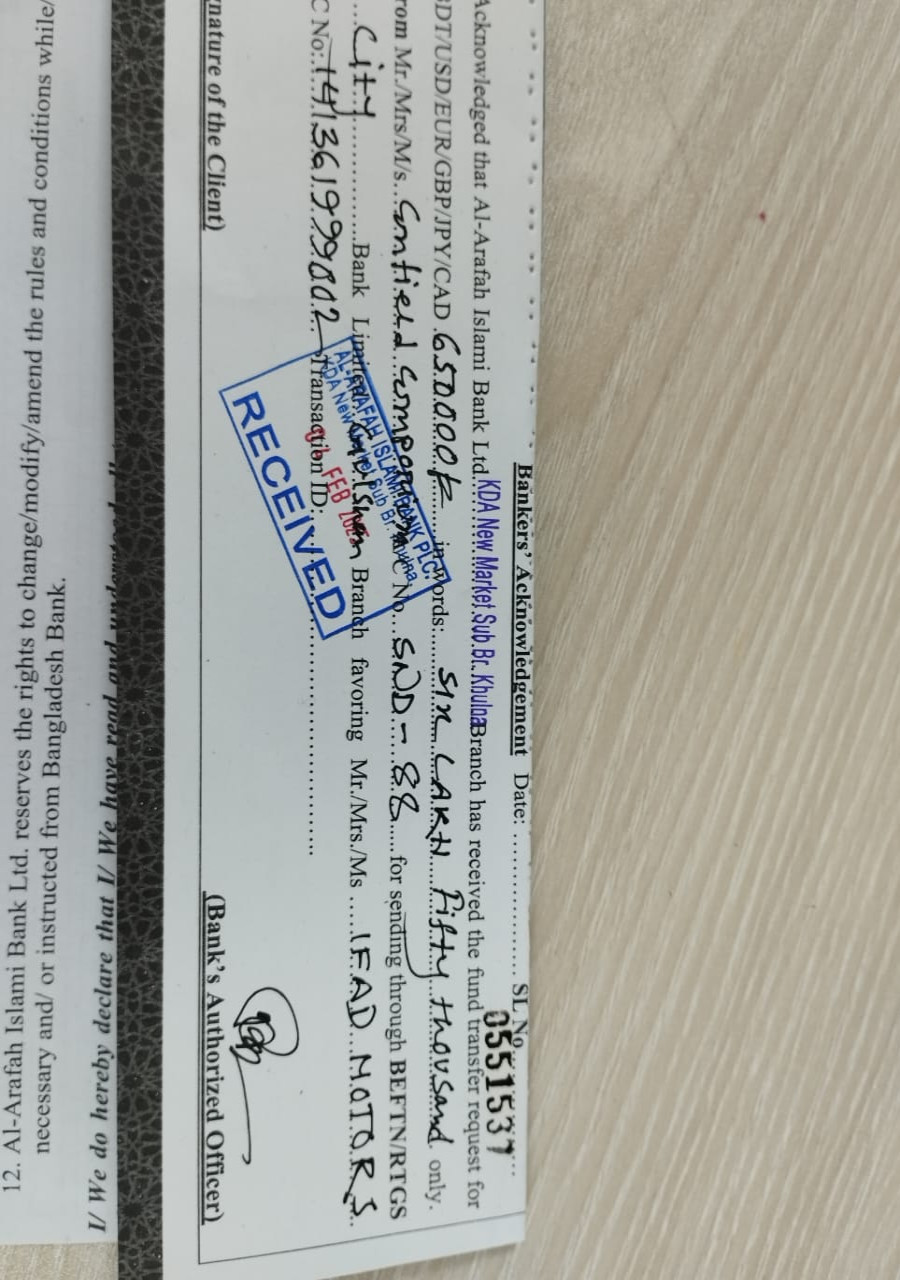 Bankers' Acknowledgement Date: .................. SL No.......
0551537
Acknowledged that Al-Arafah Islami Bank Ltd. KDA New Market Sub Br. Khulna Branch has received the fund transfer request for
BDT/USD/EUR/GBP/JPY/CAD 650000/- in words: SIX LAKH Fifty thousand only.
rom Mr./Mrs/M/s... C No... SND-88 for sending through BEFTN/RTGS
City Bank Limited Branch favoring Mr./Mrs./Ms IFAD MOTORS
C No: 141361999002 Transaction ID:
AL-ARAFAH ISLAMI BANK PLC.
KDA New Market Sub Br. Khulna
FEB
RECEIVED
nature of the Client) (Bank's Authorized Officer)
12. Al-Arafah Islami Bank Ltd. reserves the rights to change/modify/amend the rules and conditions while/
necessary and/ or instructed from Bangladesh Bank.
I/ We do hereby declare that I/ We have read and understood